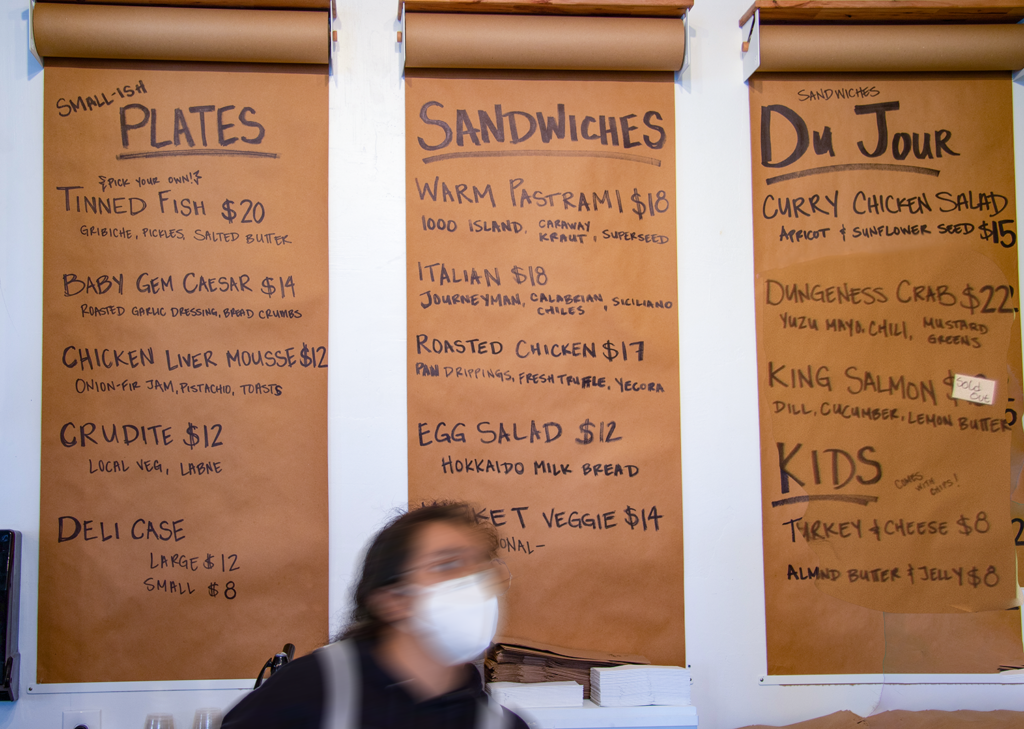 SMALL-ISH
PLATES
{PICK YOUR OWN!}
TINNED FISH $20
GRIBICHE, PICKLES, SALTED BUTTER
BABY GEM CAESAR $14
ROASTED GARLIC DRESSING, BREAD CRUMBS
CHICKEN LIVER MOUSSE $12
ONION-FIR JAM, PISTACHIO, TOASTS
CRUDITE $12
LOCAL VEG, LABNE
DELI CASE
LARGE $12
SMALL $8
SANDWICHES
WARM PASTRAMI $18
1000 ISLAND, CARAWAY KRAUT, SUPERSEED
ITALIAN $18
JOURNEYMAN, CALABRIAN CHILES, SICILIANO
ROASTED CHICKEN $17
PAN DRIPPINGS, FRESH TRUFFLE, YECORA
EGG SALAD $12
HOKKAIDO MILK BREAD
VEGGIE $14
SANDWICHES
DU JOUR
CURRY CHICKEN SALAD
APRICOT & SUNFLOWER SEED $15
DUNGENESS CRAB $22!
YUZU MAYO, CHILI, MUSTARD GREENS
KING SALMON $
Sold Out
DILL, CUCUMBER, LEMON BUTTER
KIDS
COMES WITH CHIPS!
TYRKEY & CHEESE $8
ALMND BUTTER & JELLY $8